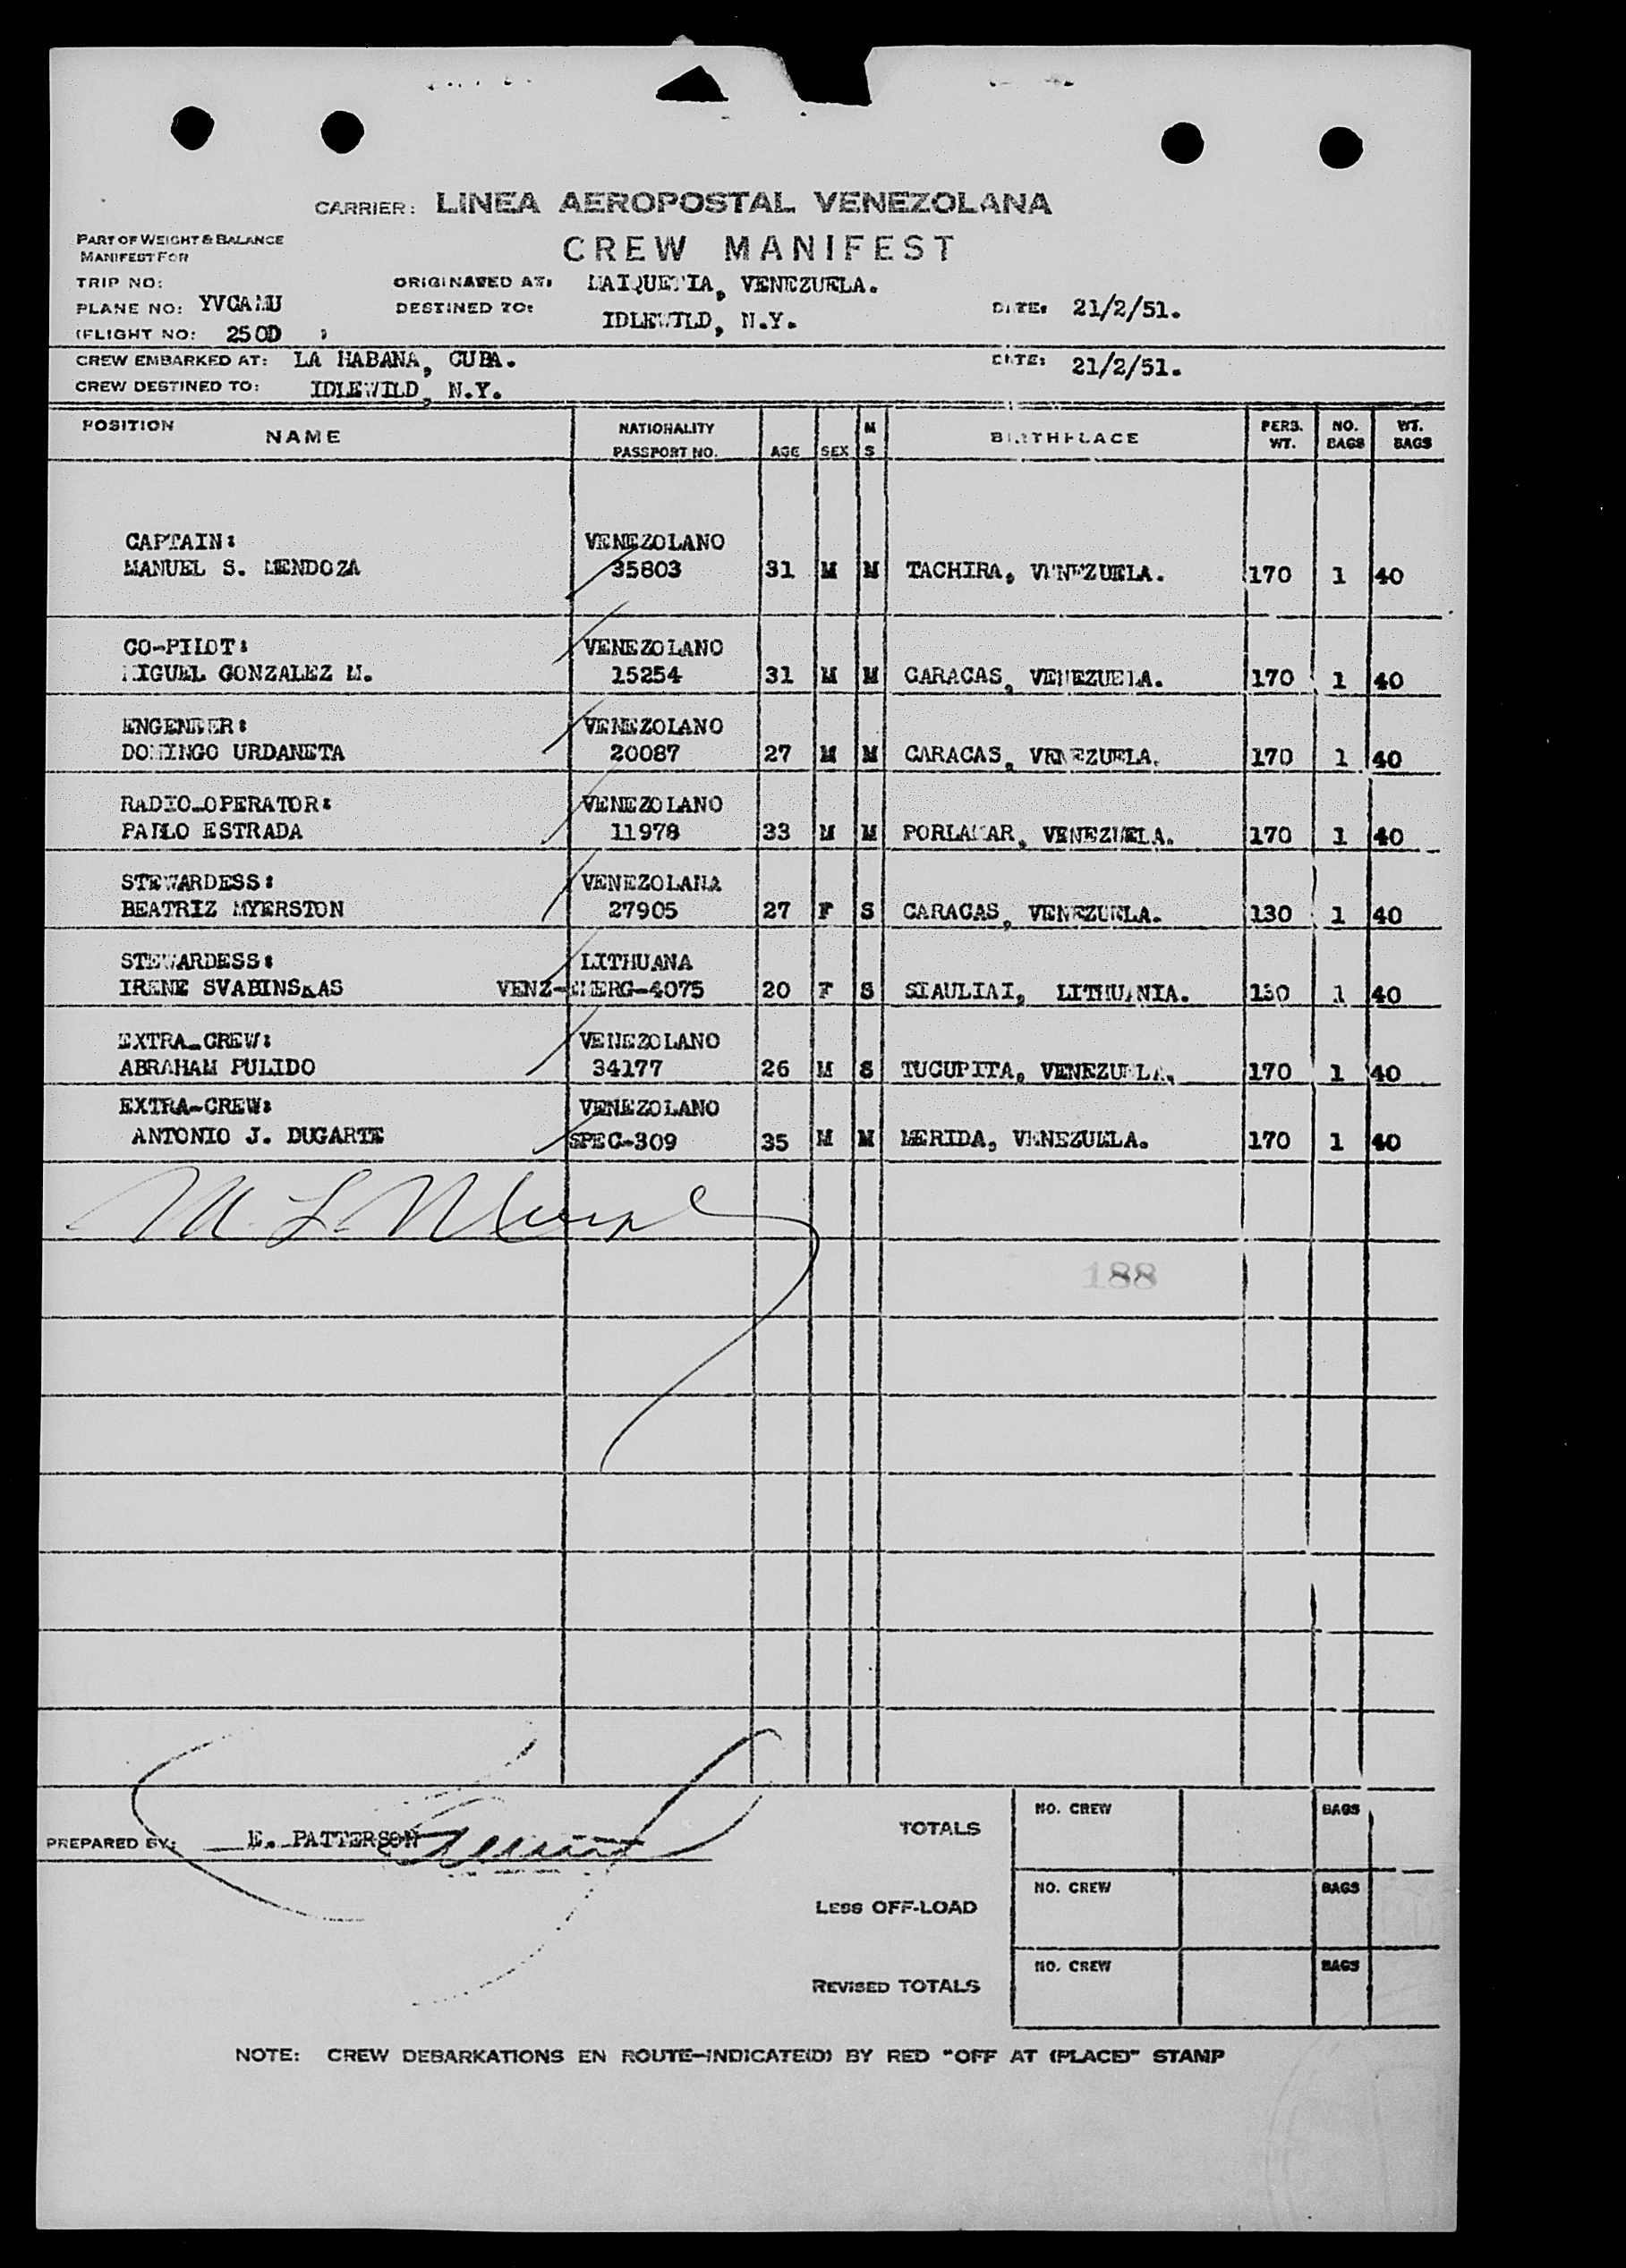 CARRIER: LINEA AEROPOSTAL VENEZOLANA
PART OF WEIGHT & BALANCE
MANIFEST FOR
CREW MANIFEST
TRIP NO:
ORIGINATED AT: MAIQUETIA, VENEZUELA.
PLANE NO: YVCAMU
DESTINED TO: IDLEWILD, N.Y.
DATE: 21/2/51.
(FLIGHT NO: 250D )
CREW EMBARKED AT: LA HABANA, CUBA.
DATE: 21/2/51.
CREW DESTINED TO: IDLEWILD, N.Y.
POSITION NAME NATIONALITY PASSPORT NO. AGE SEX M S BIRTHPLACE PERS. WT. NO. BAGS WT. BAGS
CAPTAIN: VENEZOLANO
MANUEL S. MENDOZA 35803 31 M M TACHIRA, VENEZUELA. 170 1 40
CO-PILOT: VENEZOLANO
MIGUEL GONZALEZ M. 15254 31 M M CARACAS, VENEZUELA. 170 1 40
ENGENEER: VENEZOLANO
DOMINGO URDANETA 20087 27 M M CARACAS, VENEZUELA. 170 1 40
RADIO-OPERATOR: VENEZOLANO
PABLO ESTRADA 11978 33 M M PORLAMAR, VENEZUELA. 170 1 40
STEWARDESS: VENEZOLANA
BEATRIZ MYERSTON 27905 27 F S CARACAS, VENEZUELA. 130 1 40
STEWARDESS: LITHUANA
IRENE SVABINSKAS VENZ-EMERG-4075 20 F S SIAULIAI, LITHUANIA. 130 1 40
EXTRA-CREW: VENEZOLANO
ABRAHAM PULIDO 34177 26 M S TUCUPITA, VENEZUELA. 170 1 40
EXTRA-CREW: VENEZOLANO
ANTONIO J. DUGARTE SPEC-309 35 M M MERIDA, VENEZUELA. 170 1 40
188
PREPARED BY: E. PATTERSON
TOTALS NO. CREW BAGS
LESS OFF-LOAD NO. CREW BAGS
REVISED TOTALS NO. CREW BAGS
NOTE: CREW DEBARKATIONS EN ROUTE-INDICATE(D) BY RED "OFF AT (PLACE)" STAMP